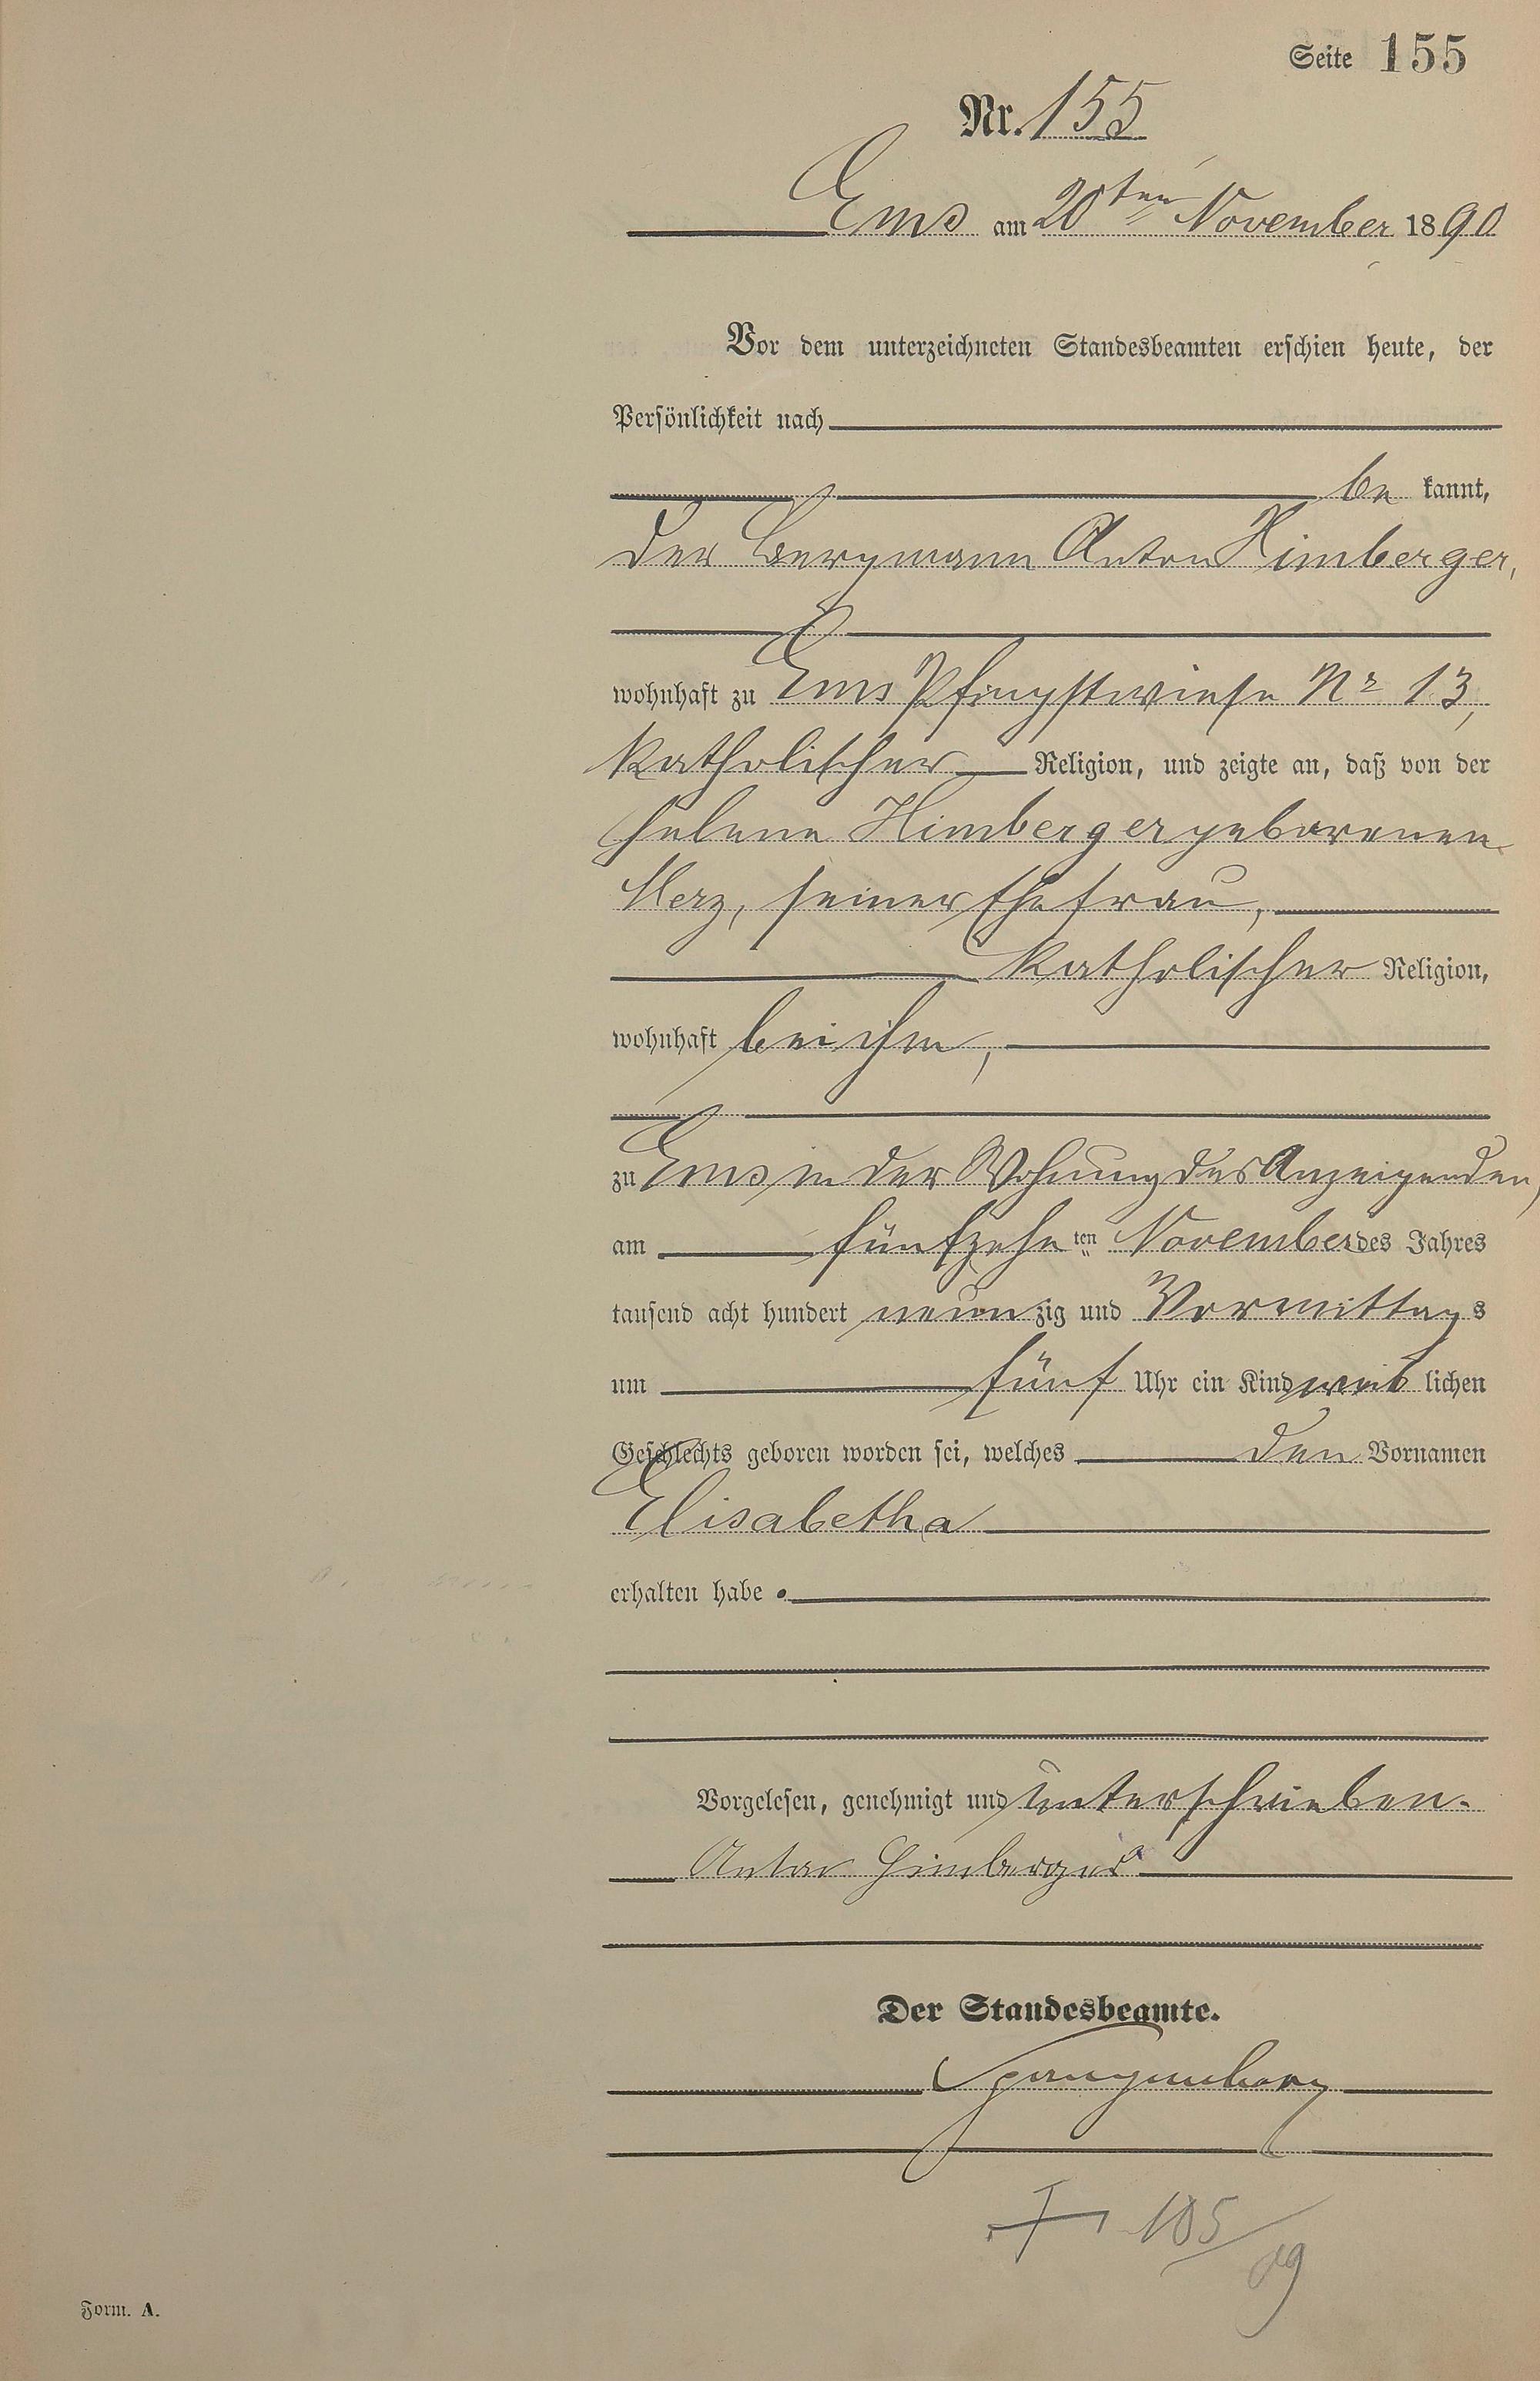 Seite 155
Nr. 155
Ems am 20ten November 1890
Vor dem unterzeichneten Standesbeamten erschien heute, der
Persönlichkeit nach
be kannt,
der Bergmann Anton Himberger,
wohnhaft zu Ems Pfingstwiese Nr 13,
katholischer Religion, und zeigte an, daß von der
Helene Himberger geborenen
Merz, seiner Ehefrau,
katholischer Religion,
wohnhaft bei ihm,
zu Ems in der Wohnung des Anzeigenden,
am fünfzehnten November des Jahres
tausend acht hundert neunzig und Vormittags
um fünf Uhr ein Kind weiblichen
Geschlechts geboren worden sei, welches den Vornamen
Elisabetha
erhalten habe.
Vorgelesen, genehmigt und unterschrieben.
Anton Himberger
Der Standesbeamte.
Spangenberg
105/09
Form. A.